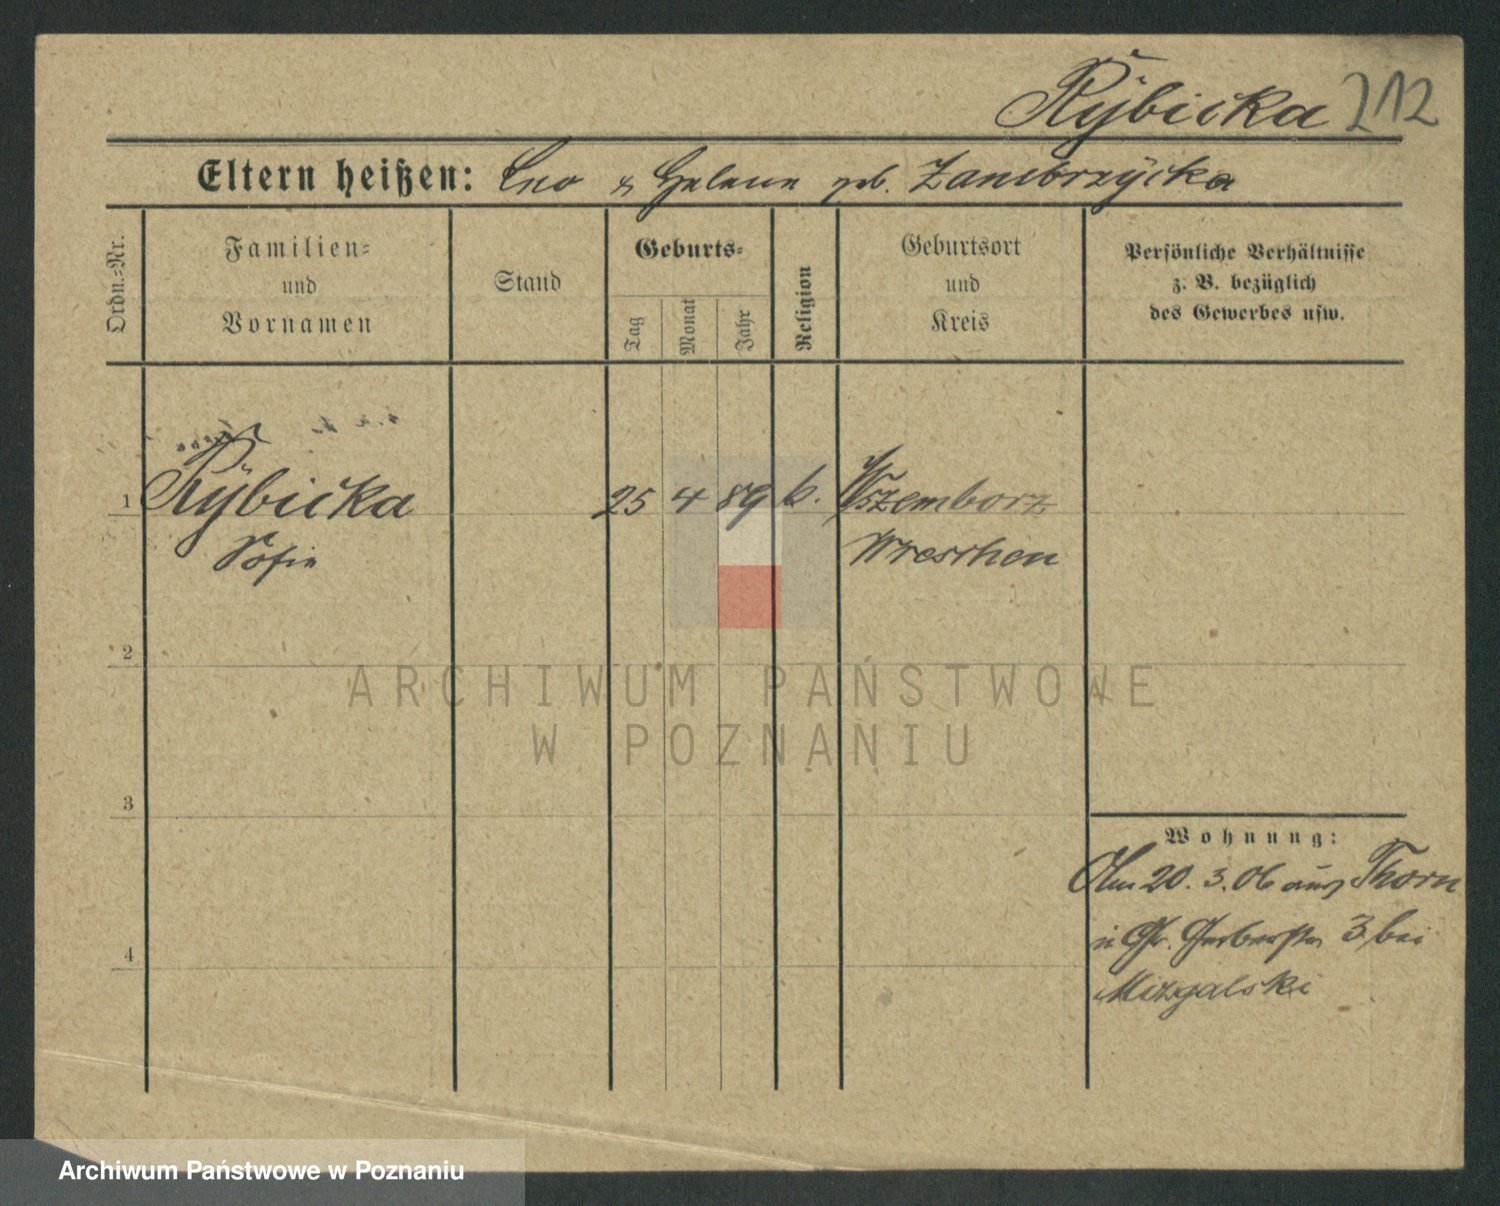 Rÿbicka 212
Eltern heißen: Leo & Helene geb. Zambrzÿcka
Ordn.=Nr.
Familien=
und
Vornamen
Stand
Geburts=
Tag
Monat
Jahr
Religion
Geburtsort
und
Kreis
Persönliche Verhältnisse
z. B. bezüglich
des Gewerbes usw.
1 Rÿbicka 25 4 89 k. Wszemborz
Sofie Wreschen
2
ARCHIWUM PAŃSTWOWE
W POZNANIU
3
Wohnung:
Am 20. 3. 06 aus Thorn
in Gr. Gerberstr 3 bei
4
Mizgalski
Archiwum Państwowe w Poznaniu